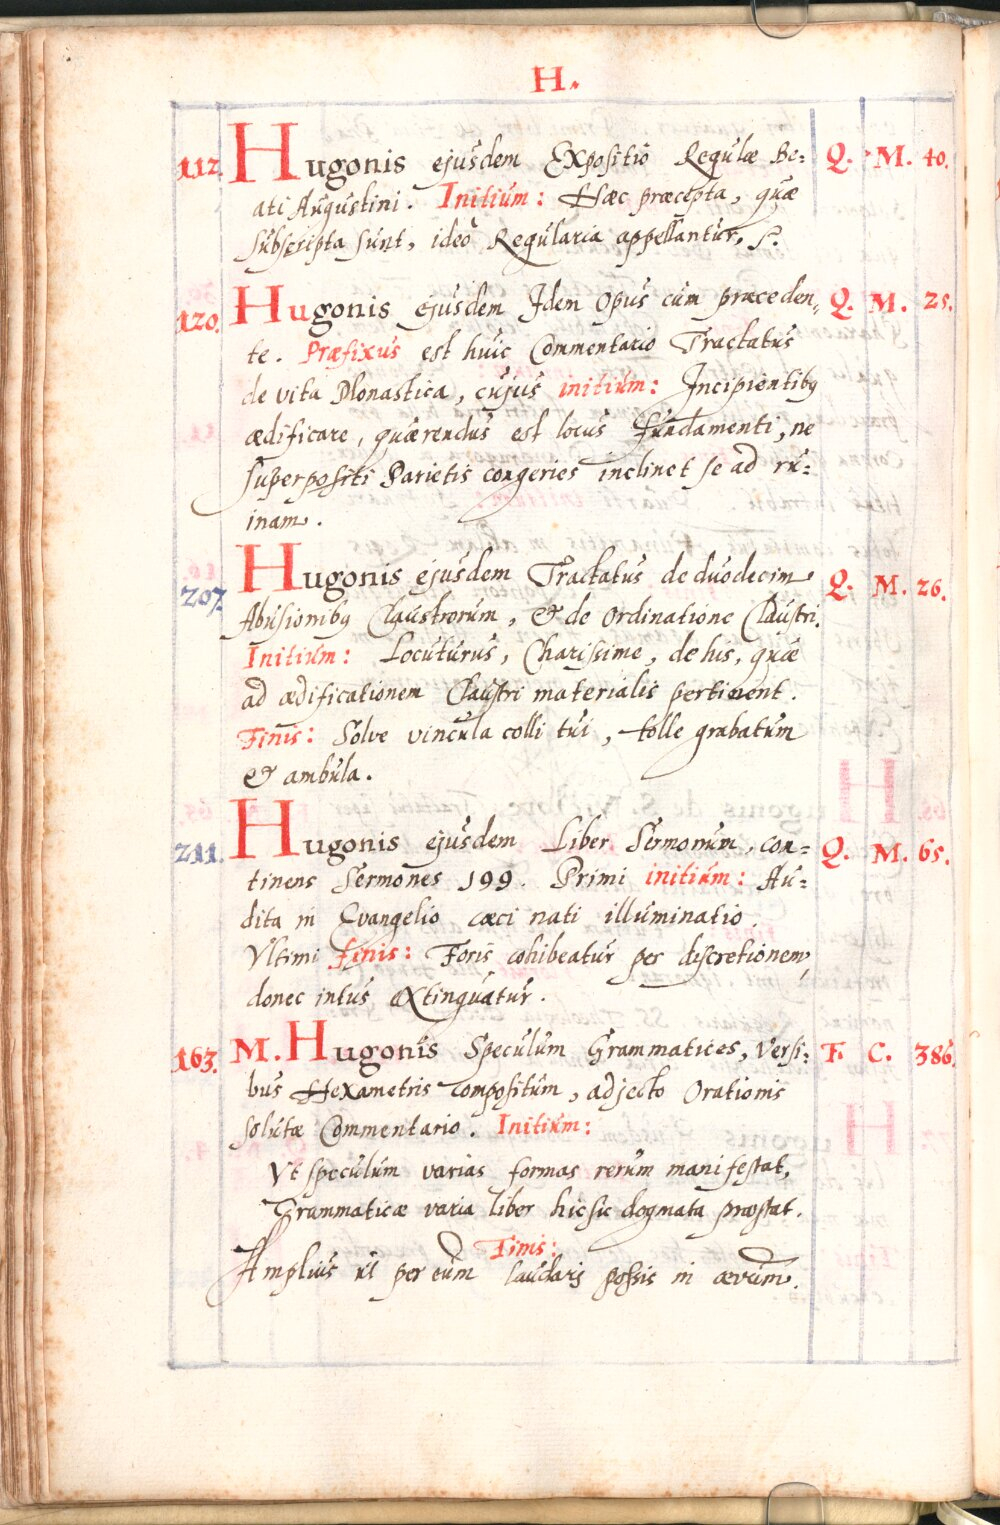 H.
112. Hugonis ejusdem Expositio Regulæ Be= Q. M. 40.
ati Augustini. Initium: Hæc præcepta, quæ
subscripta sunt, ideò Regularia appellantur, S.
120. Hugonis ejusdem Idem Opus cum præceden„ Q. M. 25.
te. Præfixus est huic Commentario Tractatus
de vita Monastica, cujus initium: Incipientibꝰ
ædificare, quærendus est locus fundamenti, ne
superpositi Parietis congeries inclinet se ad ru=
inam.
207. Hugonis ejusdem Tractatus de duodecim Q. M. 26.
Abusionibꝰ Claustrorum, & de Ordinatione Claustri.
Initium: Locuturus, Charissime, de his, quæ
ad ædificationem Claustri materialis pertinent.
Finis: Solve vincula colli tui, tolle grabatum
& ambula.
211. Hugonis ejusdem Liber Sermonum, con= Q. M. 65.
tinens Sermones 199. Primi initium: Au=
dita in Evangelio cæci nati illuminatio.
Vltimi finis: Foris cohibeatur per discretionem,
donec intus extinguatur.
163. M. Hugonis Speculum Grammatices, Versi= F. C. 386.
bus Hexametris compositum, adjecto Orationis
solutæ Commentario. Initium:
Vt speculum varias formas rerum manifestat,
Grammaticæ varia liber hic sic dogmata præstat.
Finis:
Amplius ut per eum laudaris possis in ævum.